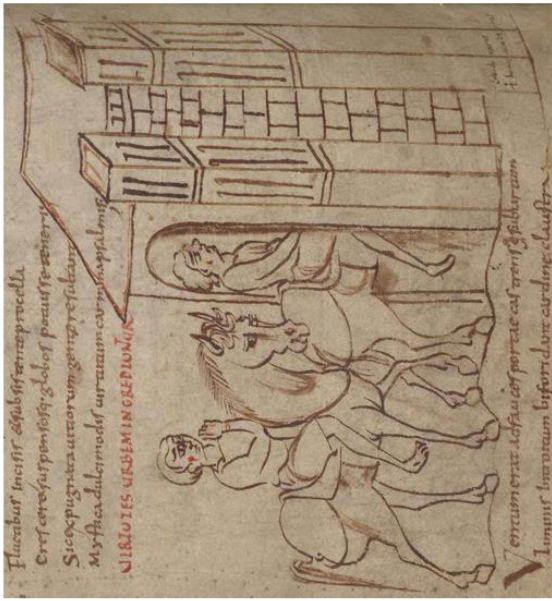 Fluctibus incisis & subsistente procella
Crescere suspensosq; globos potuisse teneri
Sic expugnata uitiorum gente resultant
Mystica dulcimodis uirtutum carmina psalmis
VIRTUTES URBEM INGREDIUNTUR
Ventum erat ad fauces portae castrensis ubi artum
Liminis introitum bifori dant cardine claustra